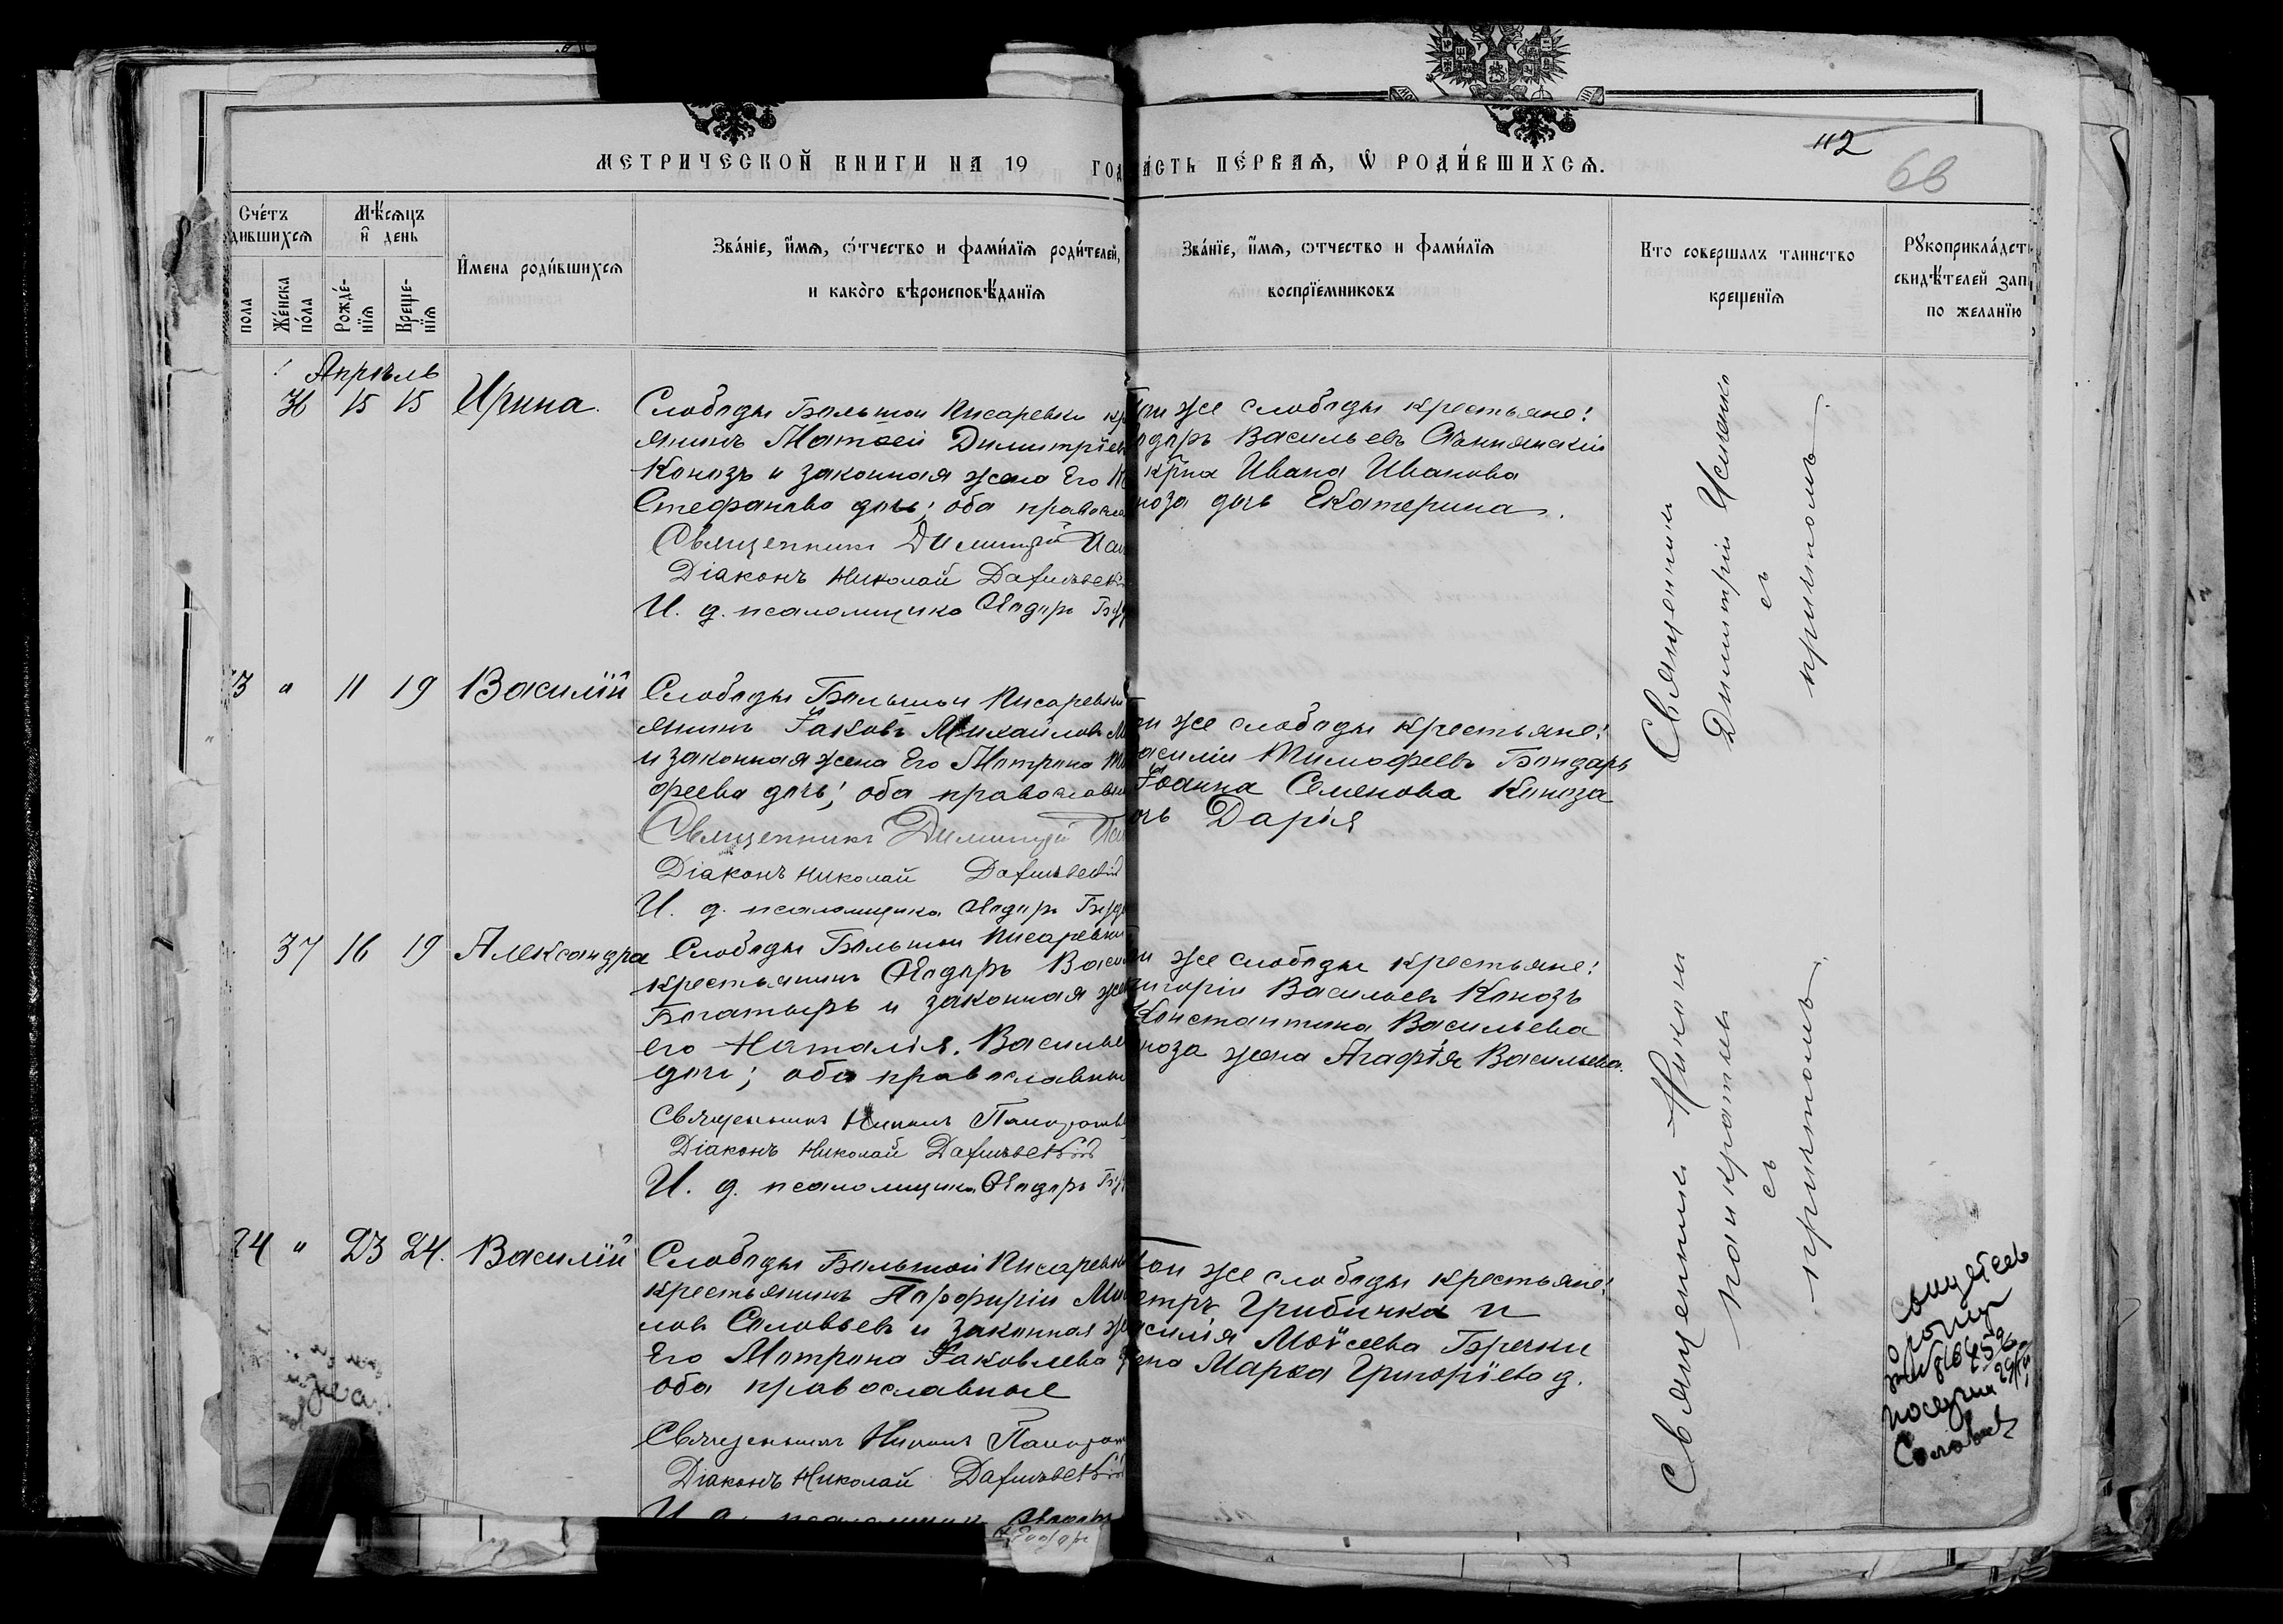 112
66
МЕТРИЧЕСКОЙ КНИГИ НА 19 ГОД
АСТЬ ПЕ́РВАѦ, Ѡ РОДИ́ВШИХСѦ.
Сче́тъ
дившихсѧ
Мѣ́сѧцъ
и҆ день
пола
Же́нска
по́ла
Рожде́-
нїѧ
Креще-
нїѧ
И҆мена роди́вшихсѧ
Зва́нїе, и҆́мѧ, ѻ҆́тчество и фами́лїѧ роди́телей,
и како́го вѣроисповѣ́данїѧ
Зва́нїе, и҆́мѧ, ѻтчество и фами́лїѧ
воспрїе́мниковъ
Кто совершалъ таинство
крещенїѧ
Рꙋкоприкла́дст
свидѣ́телей зап
по желанїю
Апрѣль
36 15 15 Ирина.
Слободы Большой Писаревки кр
янинъ Матѳей Димитріев
Конозъ и законная жена Его
Стефанова дочь; оба правосла
Священникъ Димитрій
Діаконъ Николай
И. д. псаломщика Ѳедоръ
ой же слободы крестьяне:
одоръ Васильевъ
Ивана Иванова
ноза дочь Екатерина.
Священникъ
Димитрій
съ
причтомъ
3 " 11 19 Василій
Слободы Большой Писаревки
янинъ Іаковъ Михайловъ
и законная жена Его Матрона
феева дочь; оба православн
Священникъ Димитрій
Діаконъ Николай
И. д. псаломщика Ѳедоръ
ой же слободы крестьяне:
асилій Тимофеевъ Бондарь
Іоанна Семенова Коноза
чь Дарія
37 16 19 Александра
Слободы Большой Писаревки
крестьянинъ Ѳедоръ Васи
Богатырь и законная же
его Наталія Василье
дочь; оба православны
Священникъ Никонъ Панкратьев
Діаконъ Николай
И. д. псаломщика Ѳедоръ
ой же слободы крестьяне:
игорій Васильевъ Конозъ
Константина Васильева
ноза жена Агафія Васильева.
Священникъ Никонъ
Панкратьевъ
съ
причтомъ
24 " 23 24. Василій
Слободы Большой Писаревки
крестьянинъ Порфирій Ми
ловъ Соловьевъ и законная же
Его Матрона Іаковлева
оба православные
Священникъ Никонъ Панкрат
Діаконъ Николай
И. д. псаломщик Ѳедоръ
Той же слободы крестьяне:
етръ Грибинка и
асилія Мойсеева Бречки
ена Марѳа Григоріева д.
Соловьев